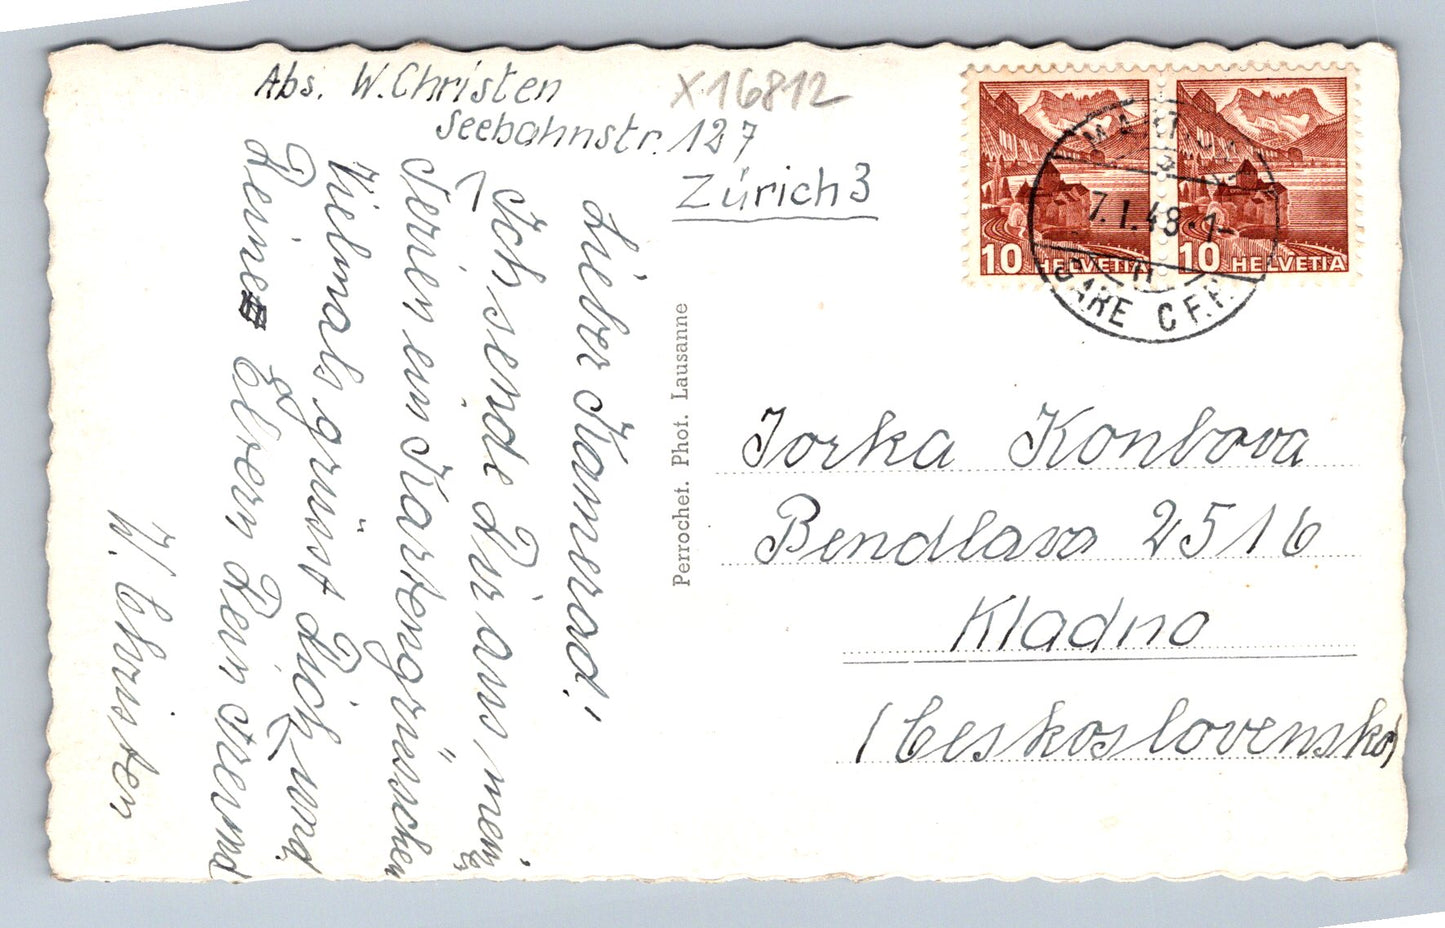 Abs. W. Christen
Seebahnstr. 127
Zürich 3
X 16812
10 HELVETIA
10 HELVETIA
7.I.48.-1-
GARE C.F.F.
Lieber Kamerad!
Ich sende Dir aus mein
Ferien ein Kartengrüsschen
Vielmals grüsst Dich und
Deine Eltern Dein Freund
W. Christen
Perrochet. Phot. Lausanne
Jorka Konbova
Bendlava 2516
Kladno
(Ceskoslovensko)